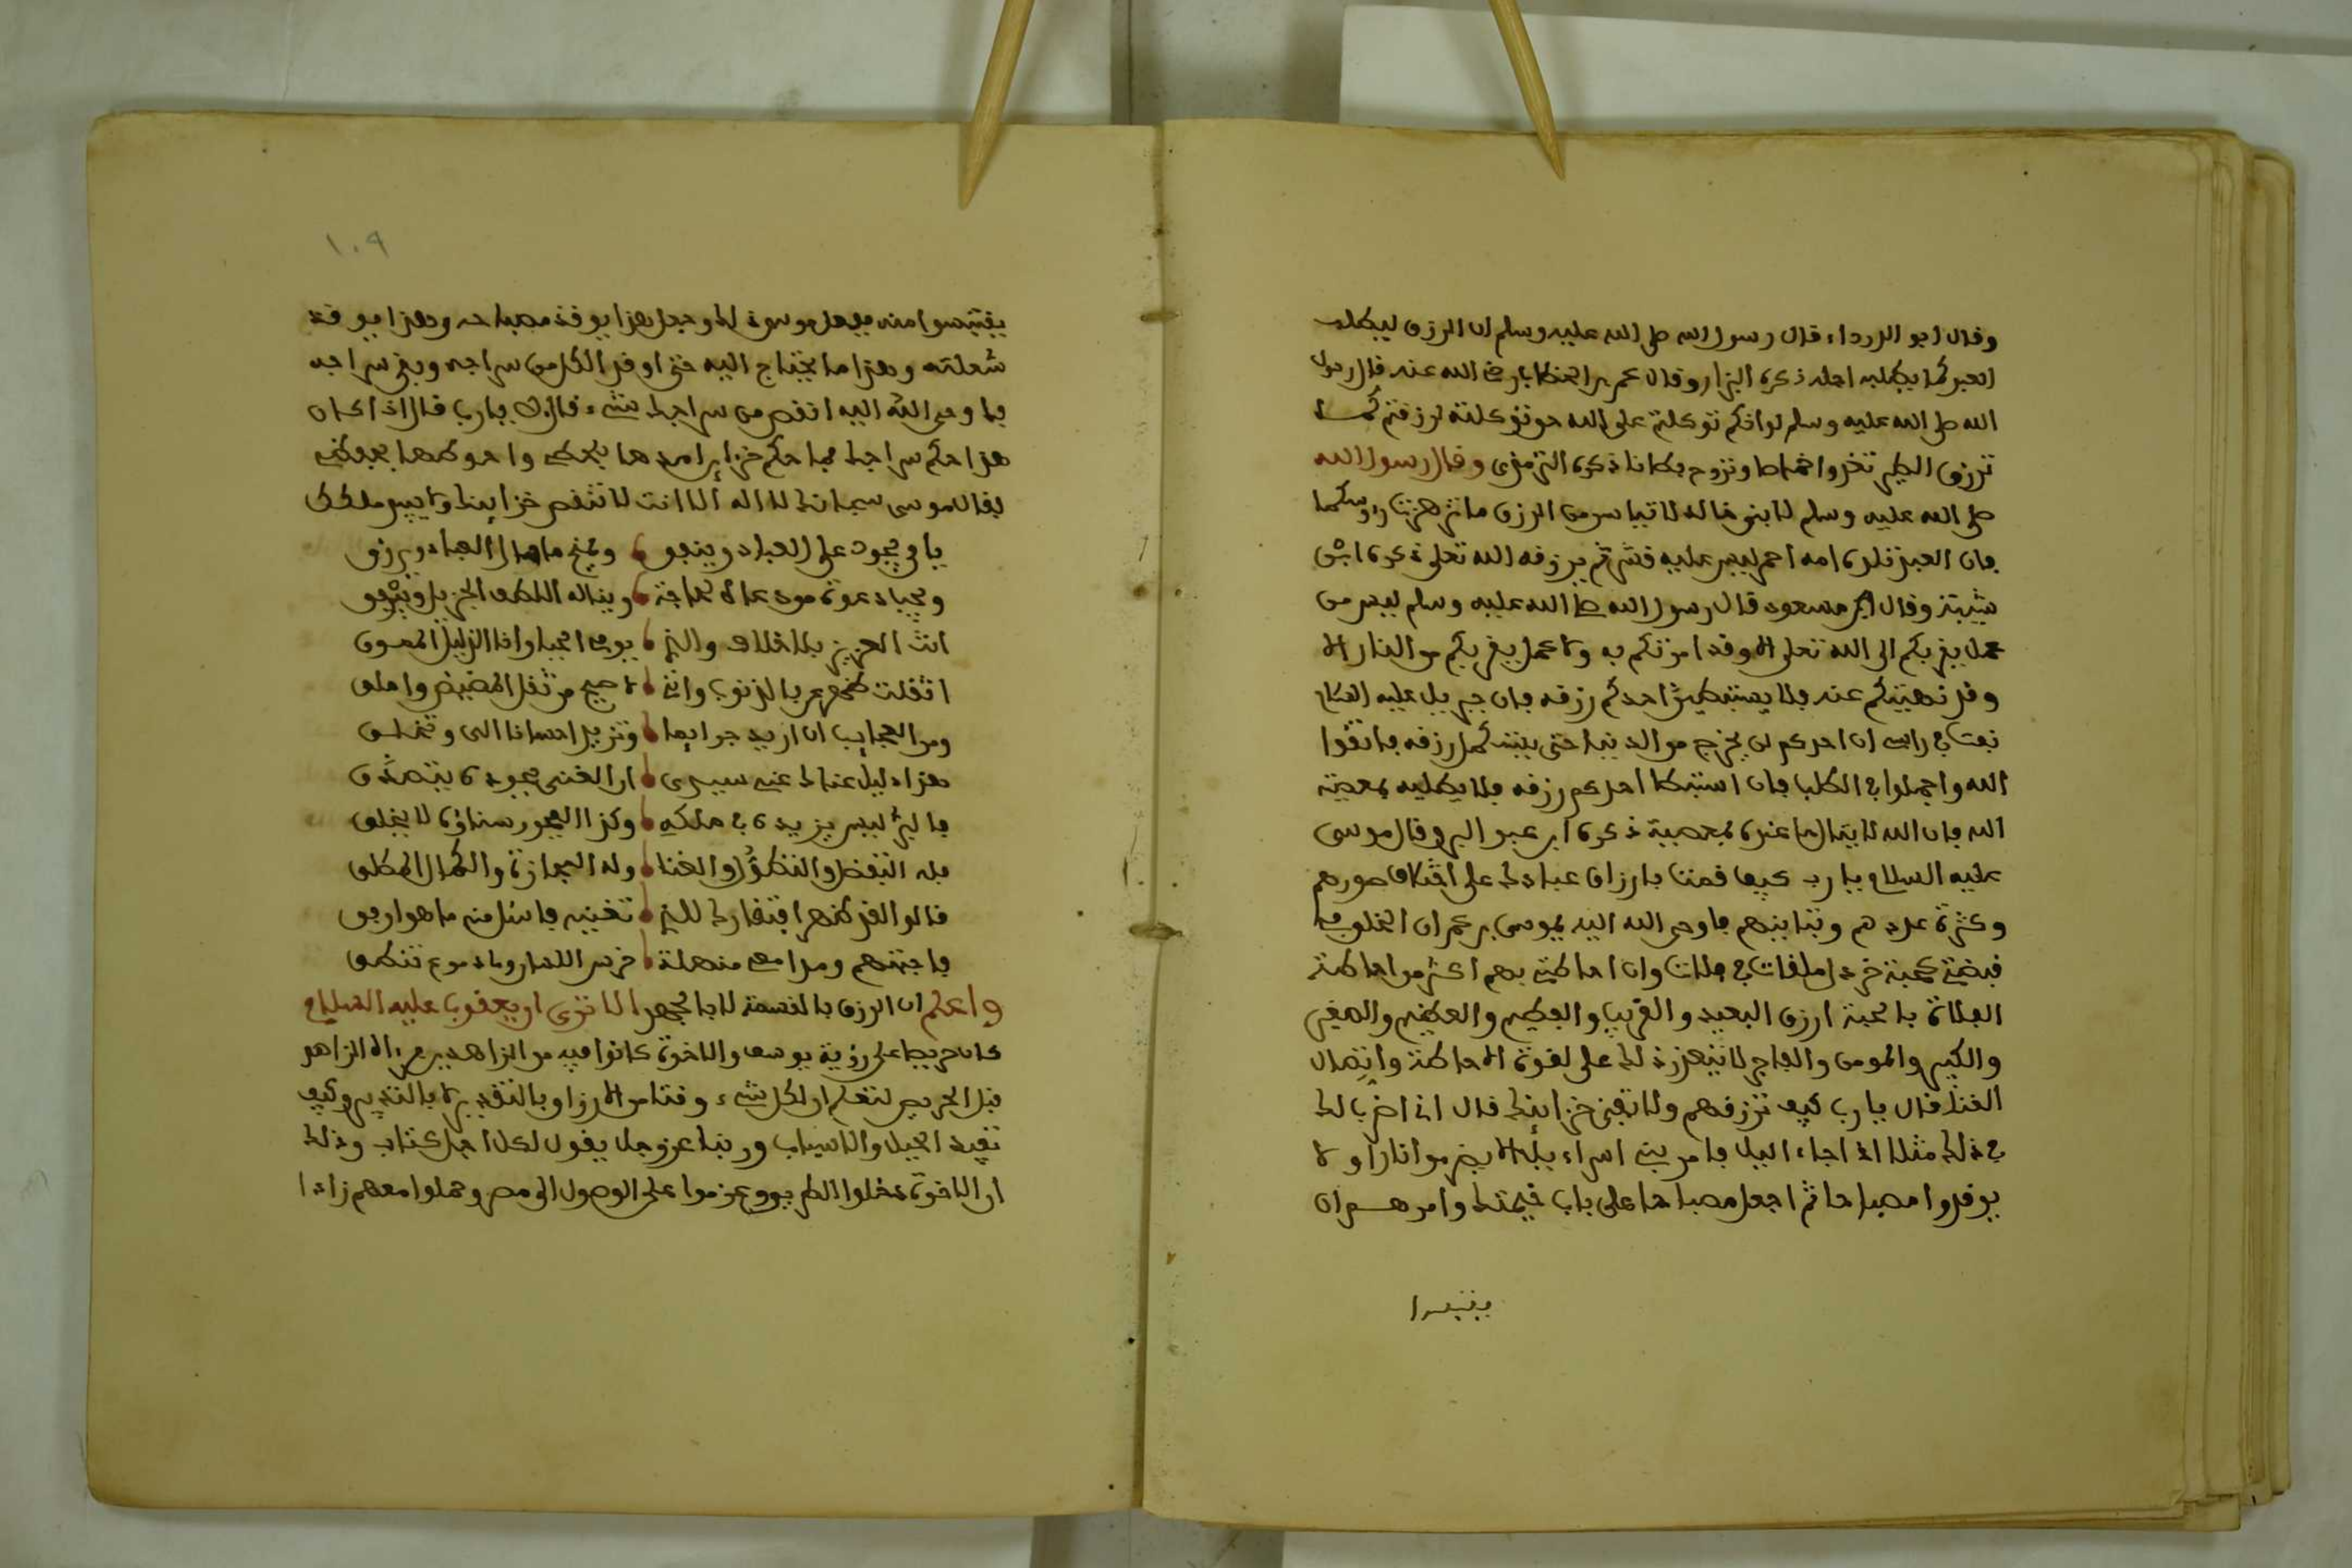 وقال ابو الدرداء قال رسول الله صلى الله عليه وسلم ان الرزق ليطلب
العبد كما يطلبه اجله ذكره البزار وقال عمر بن الخطاب رضي الله عنه قال رسول
الله صلى الله عليه وسلم لو انكم توكلتم على الله حق توكلته لرزقتم كما
ترزق الطير تغدوا خماصا وتروح بطانا ذكره الترمذي وقال رسول الله
صلى الله عليه وسلم لابني خالد لا تياسا من الرزق ما تهزهزت رءوسكما
فان العبد تلده امه احمر ليس عليه قشر ثم يرزقه الله تعلى ذكره ابن
شيبة وقال ابن مسعود قال رسول الله صلى الله عليه وسلم ليس من
عمل يقربكم الى الله تعلى الا وقد امرتكم به ولا عمل يقربكم من النار الا
وقد نهيتكم عنه فلا يستبطئن احدكم رزقه فان جبريل عليه السلام
نفث في راسي ان احدكم لن يخرج من الدنيا حتى يستكمل رزقه فاتقوا
الله واجملوا في الطلب فان استبطا احدكم رزقه فلا يطلبه بمعصية
الله فان الله لا ينال ما عنده بمعصية ذكره ابن عبد البر وقال موسى
عليه السلام يا رب كيف قمت بارزاق عبادك على اختلاف صورهم
وكثرة عددهم وتباينهم فاوحى الله اليه يموسى بن عمران الخلق في
قبضتي كحبة خردل ملقات في فلات وان احاطتي بهم اكثر من احاطة
الفلاة بالحبة ارزق البعيد والقريب والفطير والعظيم والصغير
والكبير والمومن والفاجر لا يتعزز ذلك على لقوة الاحاطة واتصال
الغنا قال يا رب كيف ترزقهم ولا تفنى خزاينك قال اني اضرب لك
في ذلك مثلا اذا جاء اليل فامر بني اسراءيل الا يضرموا نارا ولا
يوقدوا مصباحا ثم اجعل مصباحا على باب خيمتك وامرهم ان
يقتبسوا
١٠٩
يقتبسوا منه ففعل موسى ذلك وجعل هذا يوقد مصباحه وهذا يوقد
شعلته وهذا ما يحتاج اليه حتى اوقد الكل من سراجه وبقي سراجه
فاوحى الله اليه انقص من سراجك شيء قال لا يا رب قال اذا كان
هذا حكم سراجك فما حكم خزاين امدها بحكمي واحوطها بحفظي
فقال موسى سبحانك لا اله الا انت لا تنقص خزاينك ولا يبيد ملكك
يا من يجود على العباد وينفق ويمنح ما هذا العباد ويرزق
ويجيب دعوة من دعاه لحاجة وينال اللطف الجزيل ويشفق
انت العزيز بلا خلاف والذي يومي اليه وانا الذليل المعوق
اثقلت ظهري بالذنوب وانني لاصيح من ثقل المضيض واملق
ومن العجايب ان ازيد جرايما وتزيد احسانا الي وتغدق
هذا دليل عناك عني سيدي ان الغني بجوده يتصدق
ما ليس ليس يزيده في ملكه وكذا الفجور سناؤه لا يغلق
فله التفضل والتطول والغنا وله الجوازة والكمال المطلق
قالوا افتظهر افتقارك للذي تغنيه فاسئل منه ما هو ارفق
فاجبتهم ومدامعي منهلة خرس اللسان وما دموع تنطق
واعلم ان الرزق بالقسمة لا بالجهد الا ترى ان يعقوب عليه السلام
كان حريصا على رؤية يوسف والاخوة كانوا فيه من الزاهدين فرءاه الزاهد
قبل الحريص لتعلم ان لكل شيء وقتا من الارزاق بالتقدير لا بالتدبير وكيف
تفيد الحيل والاسباب وربنا عز وجل يقول لكل اجل كتاب وذلك
ان الاخوة دخلوا الطريق وعزموا على الوصول الى مصر وحملوا معهم زادا